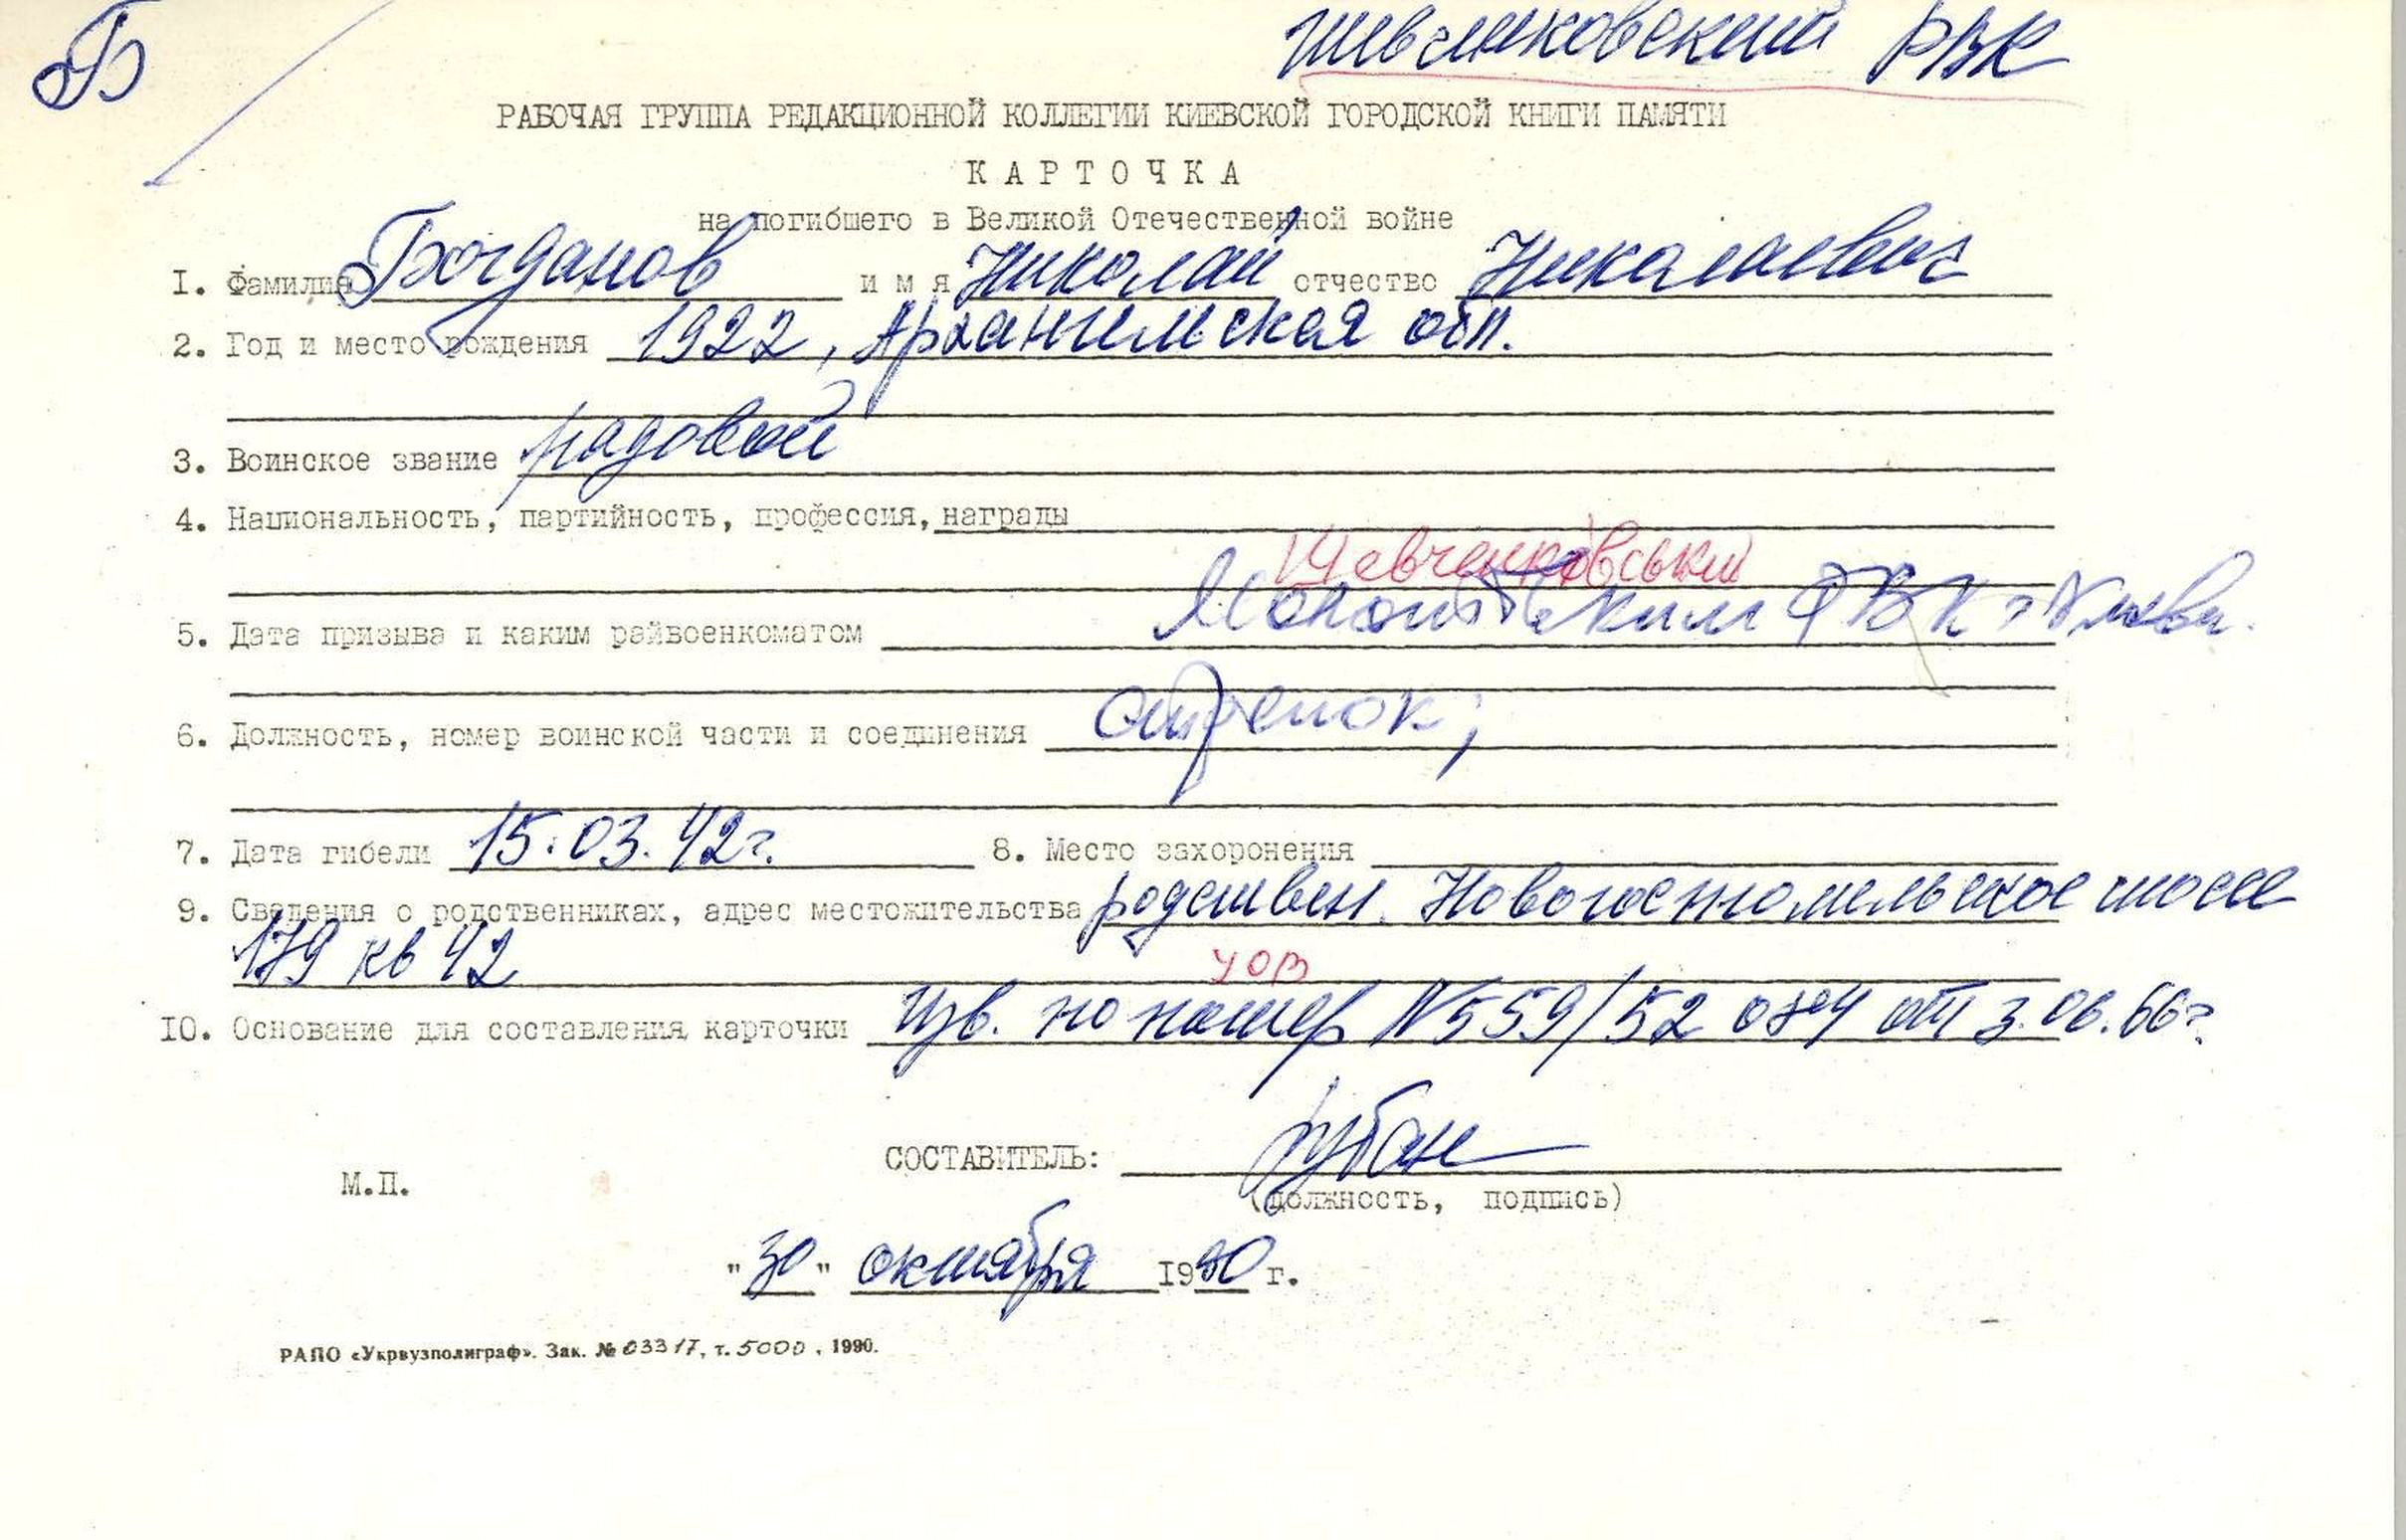 Б
Шевченковский РВК
РАБОЧАЯ ГРУППА РЕДАКЦИОННОЙ КОЛЛЕГИИ КИЕВСКОЙ ГОРОДСКОЙ КНИГИ ПАМЯТИ
КАРТОЧКА
на погибшего в Великой Отечественной войне
I. Фамилия Богданов имя Николай отчество Николаевич
2. Год и место рождения 1922, Архангельская обл.
3. Воинское звание рядовой
4. Национальность, партийность, профессия, награды
Шевченковський
5. Дата призыва и каким райвоенкоматом РВК г. Киева.
6. Должность, номер воинской части и соединения стрелок;
7. Дата гибели 15.03.42г. 8. Место захоронения
9. Сведения о родственниках, адрес местожительства родствен. Новогостомельское шоссе
179 кв 42
10. Основание для составления карточки Изв. №559/52 от 3.06.66г.
СОСТАВИТЕЛЬ: Рубан
М.П.
(должность, подпись)
"30" октября 1990 г.
РАПО «Укрвузполиграф». Зак. № 03317, т. 5000, 1990.